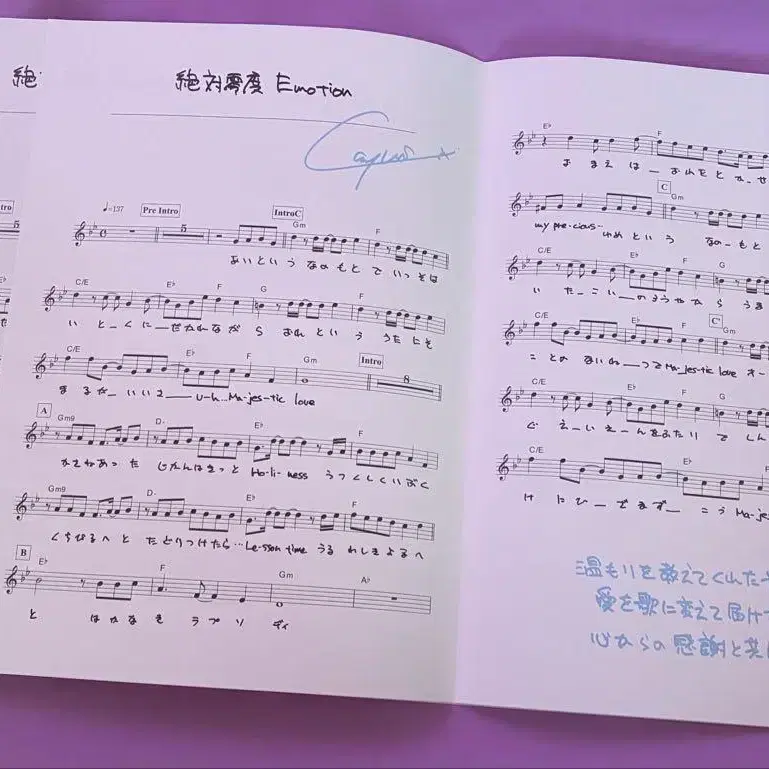 絶
絶対零度 Emotion
♩=137 Pre Intro IntroC
Gm F
5
あいという なのもと で いっそは
C/E E♭ F G C/E E♭ F
い と_くに_せかれなが ら おれ とい う うた にそ
C/E E♭ F Gm Intro
8
まるが_ いいさ__ U-h...Ma-jes-tic love
A
Gm9 D- E♭ F
かさねあった じかんはきっと Ho-li-ness うつくしくいぶく
Gm9 D- E♭ F
くちびるへ と たどりつけたら…Le-sson time うるわしきよるへ
B
E♭ F Gm A♭
と はかなき ラプソ ディ
E♭ F
おまえは_ おれをとか_せ
C
Gm
my pre-cious… ゆめという なの_もと
C/E E♭ F G
い たこい__のようせなら うま
C/E E♭ F C' Gm
ことのないね__って Ma_jes-tic love オー
C/E E♭ F G
ぐ えーいえーんをふたり で しん
C/E E♭
け にび_できず_ こう Ma-je
温もりを教えてくれた
愛を歌に変えて届け
心からの感謝と共